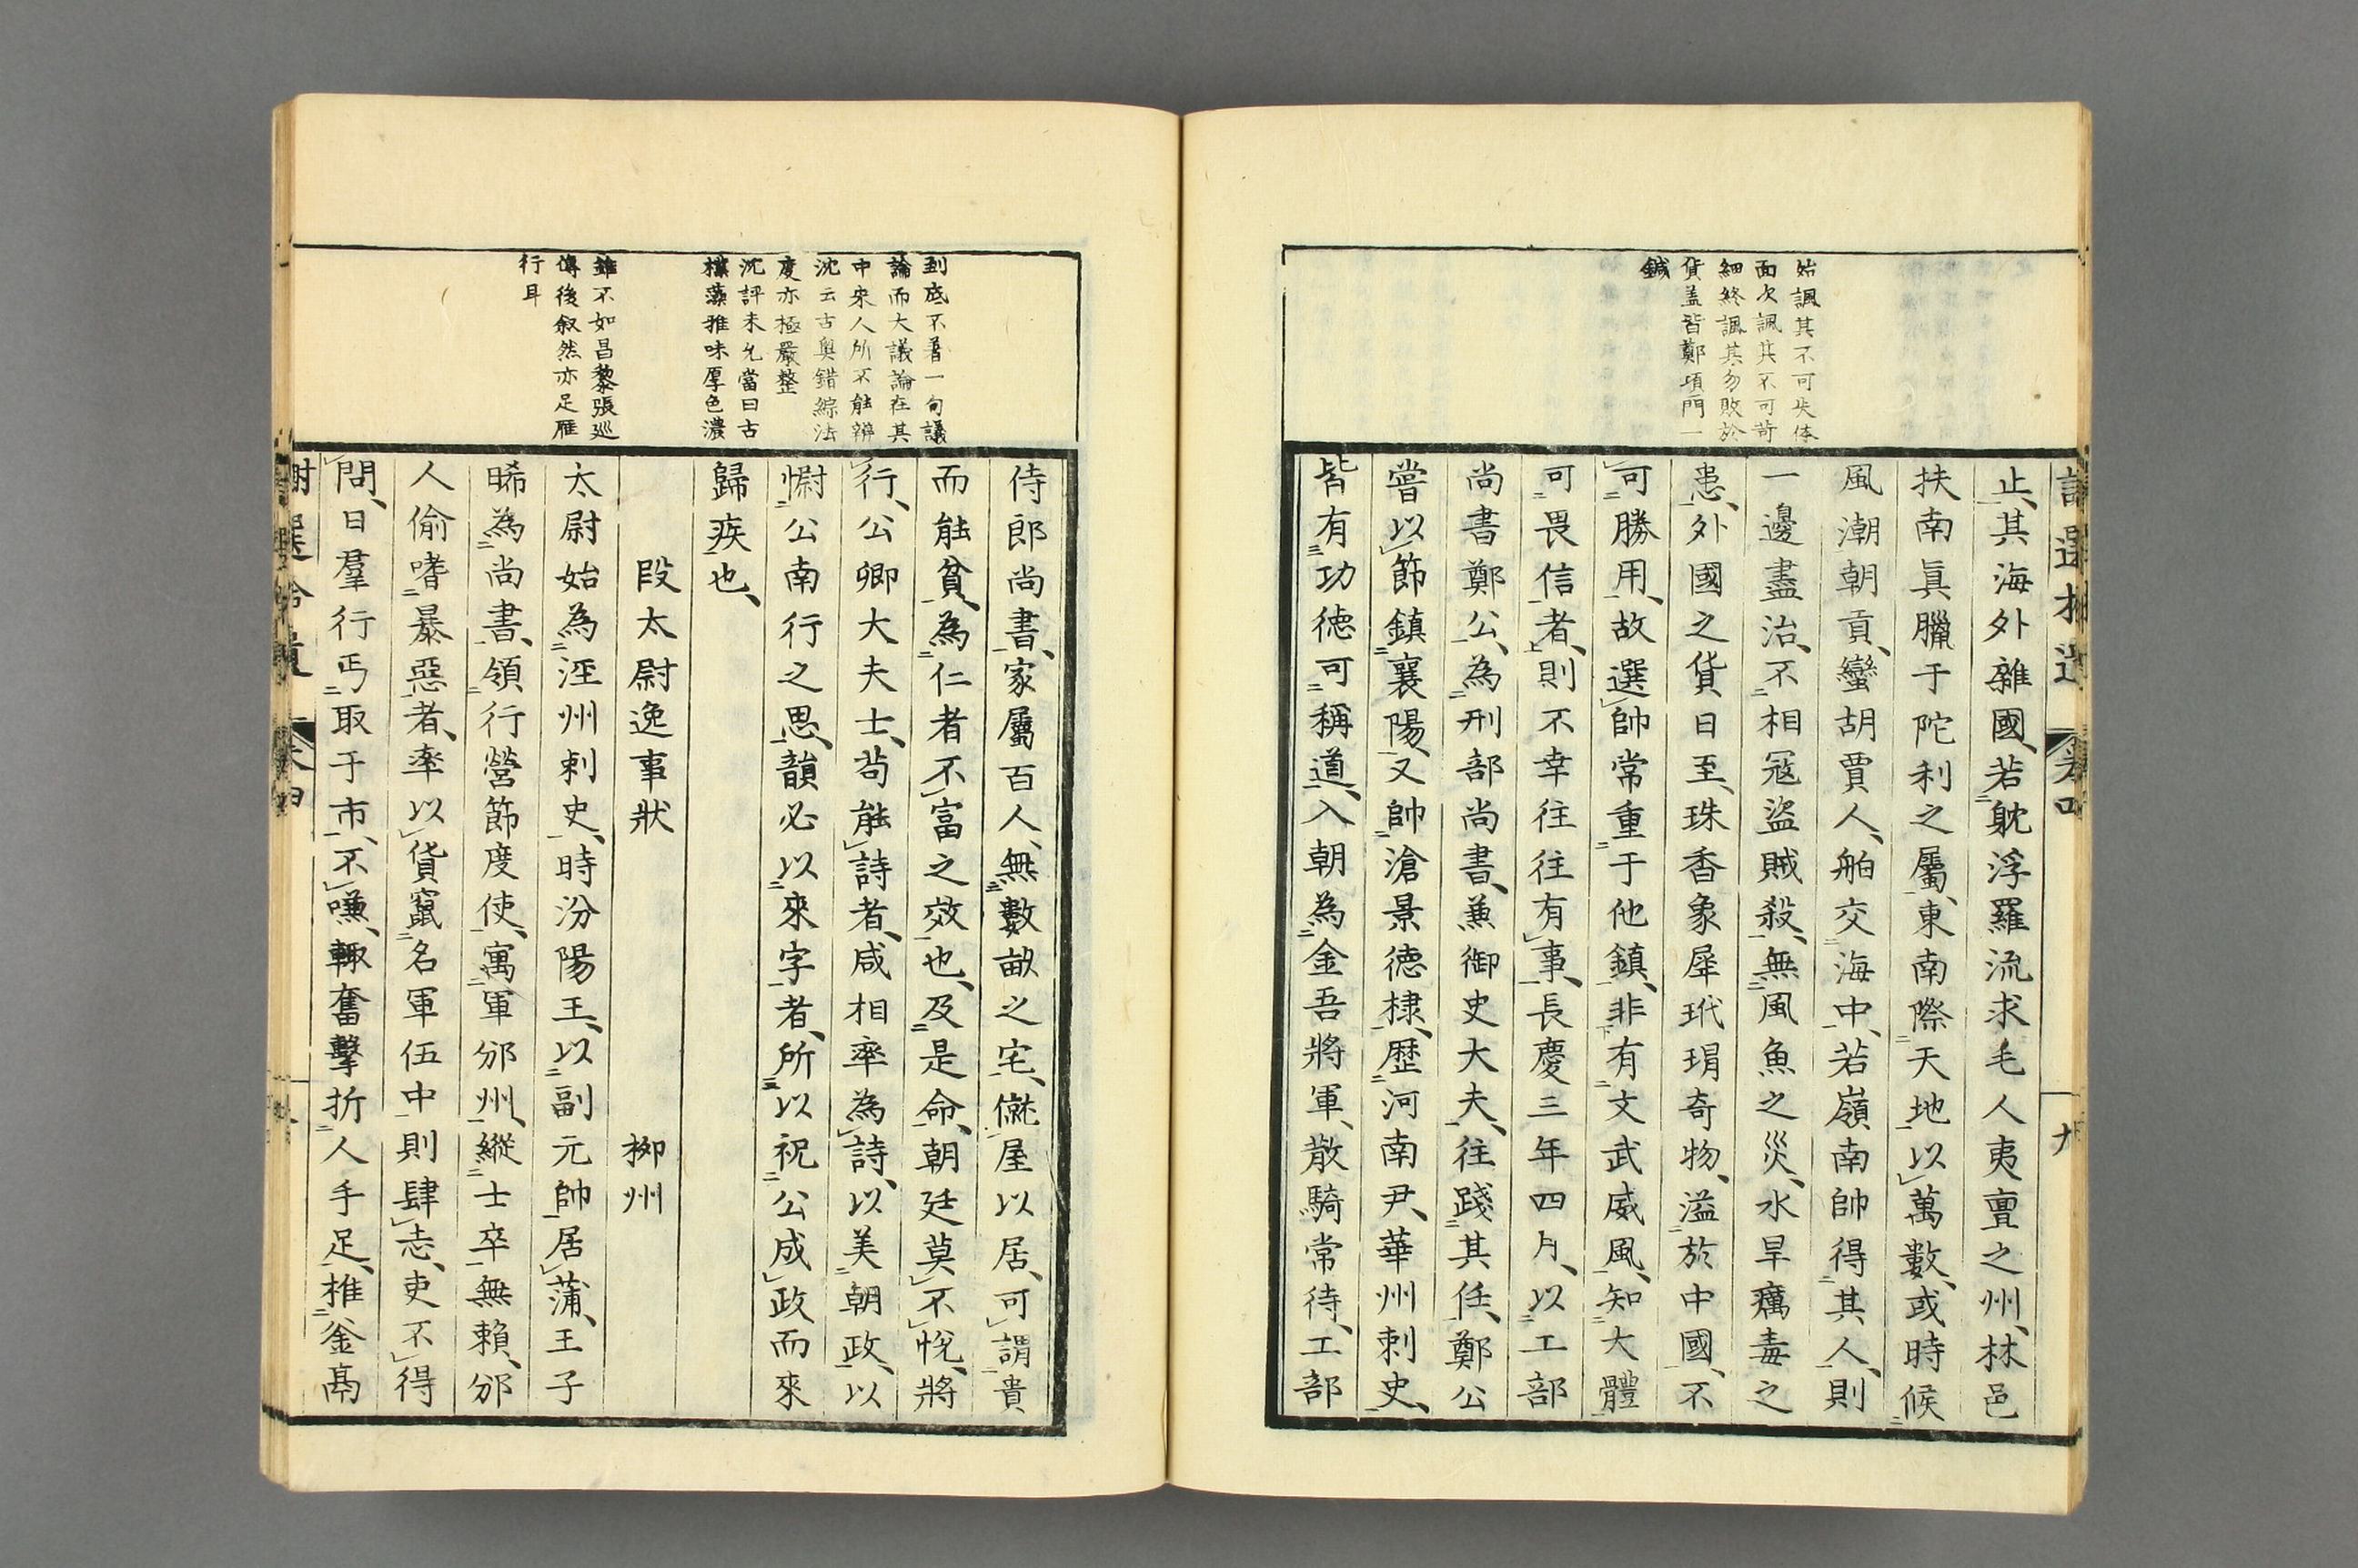 始諷其不可失体
面次諷其不可苛
細終諷其勿敗於
貨盖皆鄭項門一
鍼
止、其海外雜國、若躭浮羅流求毛人夷亶之州、林邑
扶南眞臘于陀利之屬、東南際天地、以萬數、或時候
風潮朝貢、蠻胡賈人、舶交海中、若嶺南帥得其人、則
一邊盡治、不相冦盜賊殺、無風魚之災、水旱癘毒之
患、外國之貨日至、珠香象犀玳瑁奇物、溢於中國、不
可勝用、故選帥常重于他鎮、非有文武威風、知大體
可畏信者、則不幸往往有事、長慶三年四月、以工部
尚書鄭公、為刑部尚書、兼御史大夫、往踐其任、鄭公
嘗以節鎮襄陽、又帥滄景德棣、歷河南尹、華州刺史、
皆有功德可稱道、入朝為金吾將軍、散騎常待、工部
到底不着一句議
論而大議論在其
中宋人所不能辨
沈云古奧錯綜法
度亦極嚴整
沈評未允當曰古
樸藻雅味厚色濃
雖不如昌黎張巡
傳後叙然亦足雁
行耳
侍郎尚書、家屬百人、無數畝之宅、僦屋以居、可謂貴
而能貧、為仁者不富之效也、及是命、朝廷莫不悅、將
行、公卿大夫士、苟能詩者、咸相率為詩、以美朝政、以
慰公南行之思、韻必以來字者、所以祝公成政而來
歸疾也、
段太尉逸事狀　柳州
太尉始為涇州刺史、時汾陽王、以副元帥居蒲、王子
晞為尚書、領行營節度使、寓軍邠州、縱士卒無賴、邠
人偷嗜暴惡者、率以貨竄名軍伍中、則肆志、吏不得
問、日羣行丐取于市、不嗛、輒奮擊折人手足、椎釜鬲